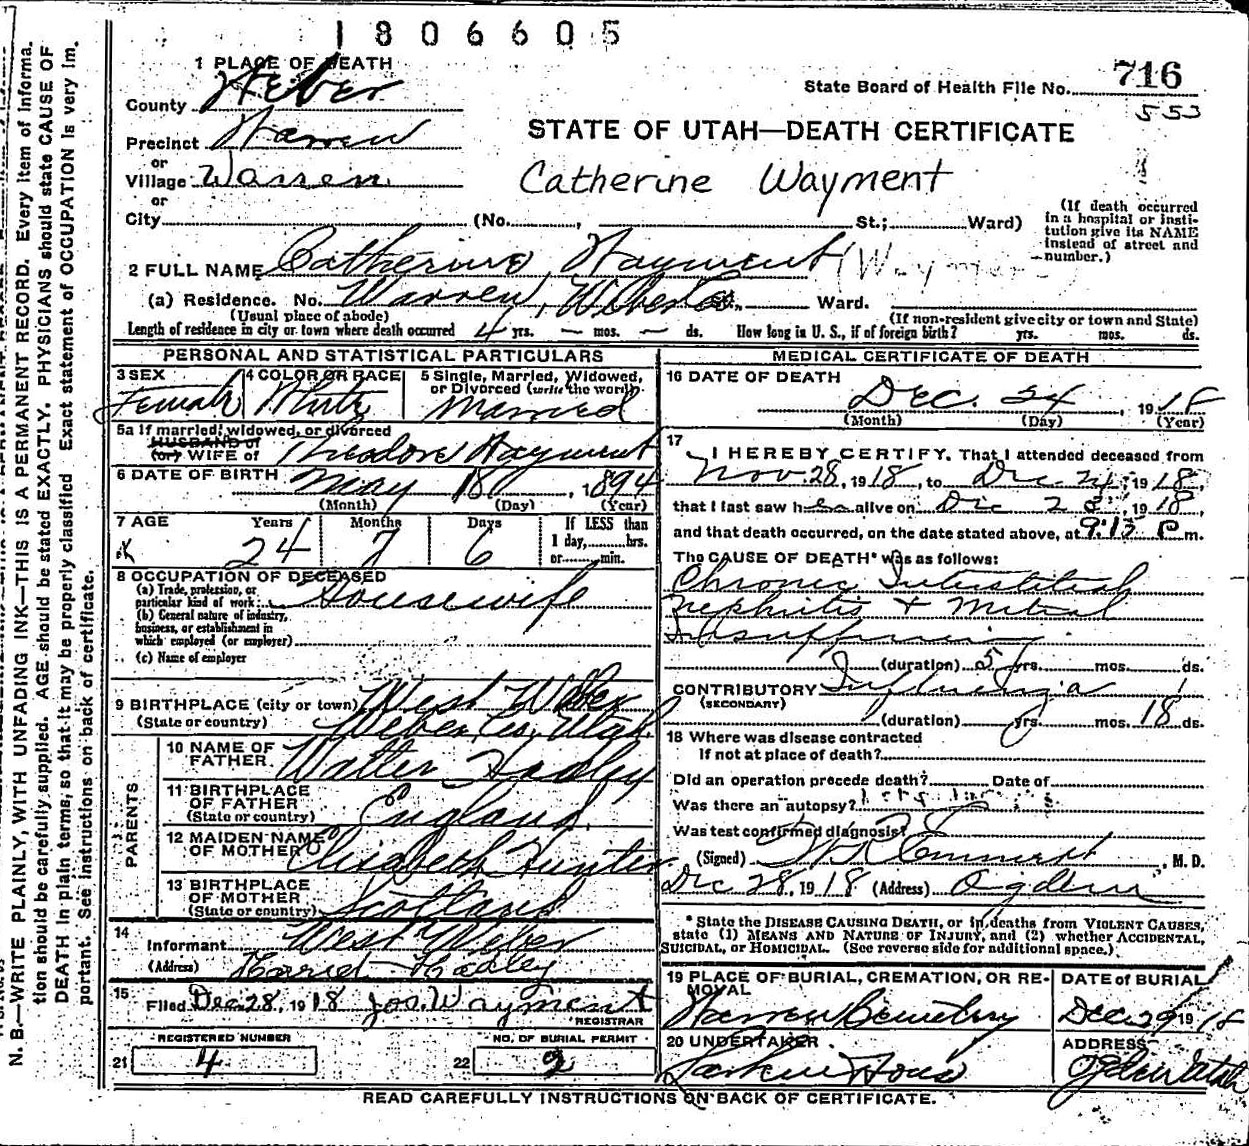 1806605
1 PLACE OF DEATH
State Board of Health File No. 716
553
County Weber
Precinct Warren
or
Village Warren
or
City (No. , St.; Ward)
STATE OF UTAH—DEATH CERTIFICATE
Catherine Wayment
(If death occurred
in a hospital or insti-
tution give its NAME
instead of street and
number.)
2 FULL NAME Catherine Wayment (Wayment
(a) Residence. No. Warren, Weber Co. St. Ward.
(Usual place of abode) (If non-resident give city or town and State)
Length of residence in city or town where death occurred 4 yrs. — mos. — ds. How long in U. S., if of foreign birth? yrs. mos. ds.
PERSONAL AND STATISTICAL PARTICULARS
3 SEX 4 COLOR OR RACE 5 Single, Married, Widowed,
or Divorced (write the word)
Female White Married
5a If married, widowed, or divorced
HUSBAND of
(or) WIFE of Theodore Wayment
6 DATE OF BIRTH May 18, 1894
(Month) (Day) (Year)
7 AGE Years Months Days If LESS than
1 day, hrs.
or min.
24 7 6
8 OCCUPATION OF DECEASED
(a) Trade, profession, or
particular kind of work Housewife
(b) General nature of industry,
business, or establishment in
which employed (or employer)
(c) Name of employer
9 BIRTHPLACE (city or town) West Weber
(State or country) Weber Co, Utah
PARENTS
10 NAME OF
FATHER Walter Hadley
11 BIRTHPLACE
OF FATHER
(State or country) England
12 MAIDEN NAME
OF MOTHER Elisabeth Hunter
13 BIRTHPLACE
OF MOTHER
(State or country) Scotland
14
Informant West Weber
(Address) Hadley
15
Filed Dec 28, 1918 Jos. Wayment
REGISTRAR
REGISTERED NUMBER NO. OF BURIAL PERMIT
21 4 22 2
MEDICAL CERTIFICATE OF DEATH
16 DATE OF DEATH
Dec. 24, 1918
(Month) (Day) (Year)
17
I HEREBY CERTIFY, That I attended deceased from
Nov. 28, 1918, to Dec 24, 1918,
that I last saw her alive on Dec 23, 1918,
and that death occurred, on the date stated above, at 9:15 P m.
The CAUSE OF DEATH* was as follows:
Chronic Interstitial
Nephritis + Mitral
Insufficiency
(duration) 5 yrs. mos. ds.
CONTRIBUTORY Influenza
(SECONDARY)
(duration) yrs. mos. 18 ds.
18 Where was disease contracted
If not at place of death?
Did an operation precede death? Date of
Was there an autopsy?
Was test confirmed diagnosis?
(Signed) , M. D.
Dec 28, 1918 (Address) Ogden
* State the DISEASE CAUSING DEATH, or in deaths from VIOLENT CAUSES,
state (1) MEANS AND NATURE OF INJURY, and (2) whether ACCIDENTAL,
SUICIDAL, or HOMICIDAL. (See reverse side for additional space.)
19 PLACE OF BURIAL, CREMATION, OR RE-
MOVAL
Warren Cemetery
DATE of BURIAL
Dec 29 1918
20 UNDERTAKER
Larkin
ADDRESS
Ogden Utah
READ CAREFULLY INSTRUCTIONS ON BACK OF CERTIFICATE.
N. B.—WRITE PLAINLY, WITH UNFADING INK—THIS IS A PERMANENT RECORD. Every item of informa-
tion should be carefully supplied. AGE should be stated EXACTLY. PHYSICIANS should state CAUSE OF
DEATH in plain terms, so that it may be properly classified. Exact statement of OCCUPATION is very im-
portant. See instructions on back of certificate.